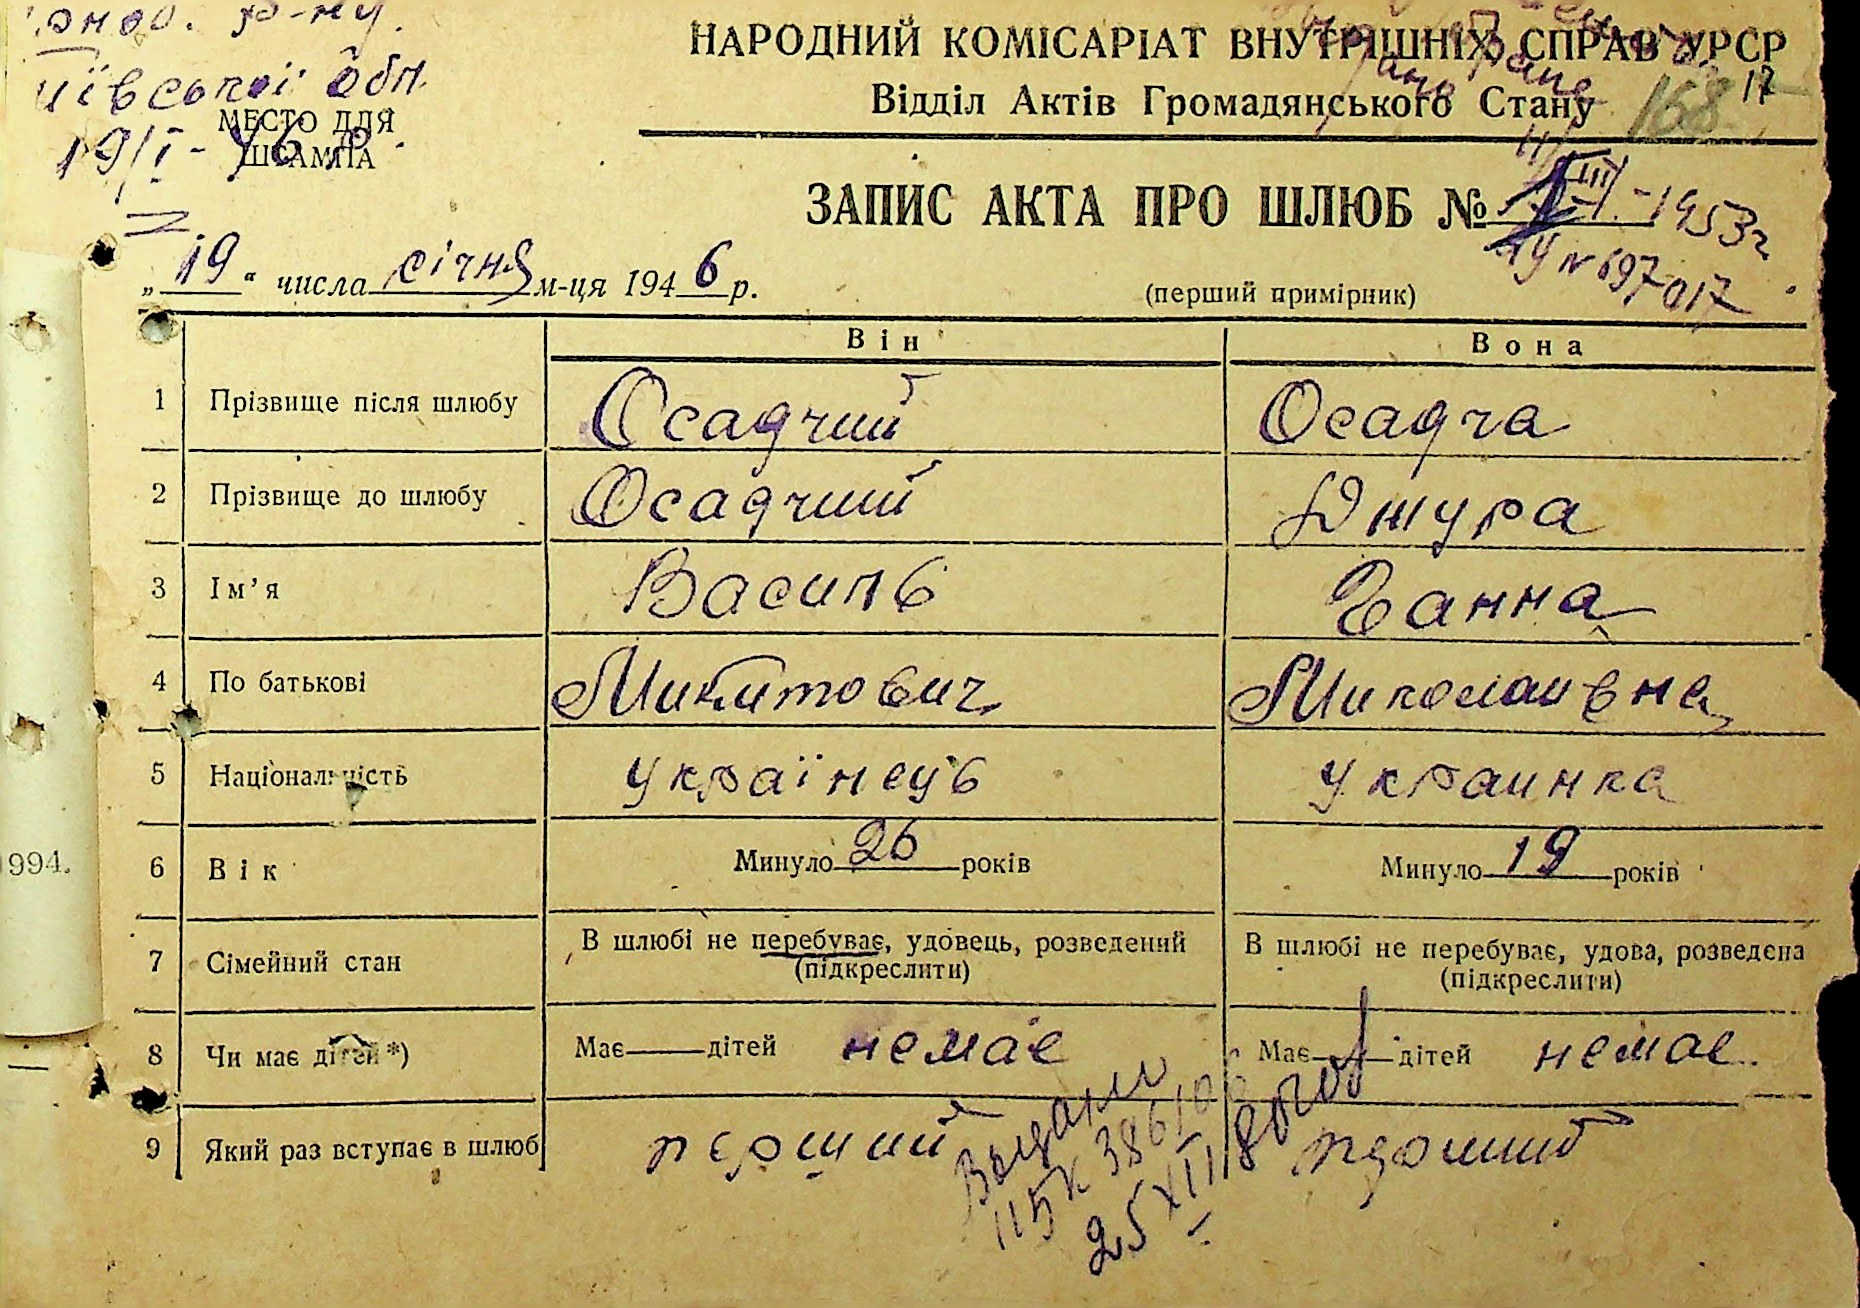 р-ну.
Київської обл.
МЕСТО ДЛЯ
ШТАМПА
19/I-46 р.
НАРОДНИЙ КОМІСАРІАТ ВНУТРІШНІХ СПРАВ УРСР
17
Відділ Актів Громадянського Стану
168
ЗАПИС АКТА ПРО ШЛЮБ №
III-1953г
№ 697017
„19“ числа січня м-ця 1946 р.
(перший примірник)
Він
Вона
1 Прізвище після шлюбу Осадчий Осадча
2 Прізвище до шлюбу Осадчий Джура
3 Ім'я Василь Ганна
4 По батькові Микитович Миколаивна
5 Національність українець украинка
6 Вік Минуло 26 років Минуло 19 років
7 Сімейний стан В шлюбі не перебуває, удовець, розведений В шлюбі не перебуває, удова, розведена
(підкреслити) (підкреслити)
8 Чи має дітей*) Має дітей немає Має дітей немає
9 Який раз вступає в шлюб перший перший
25 XII 80
994.